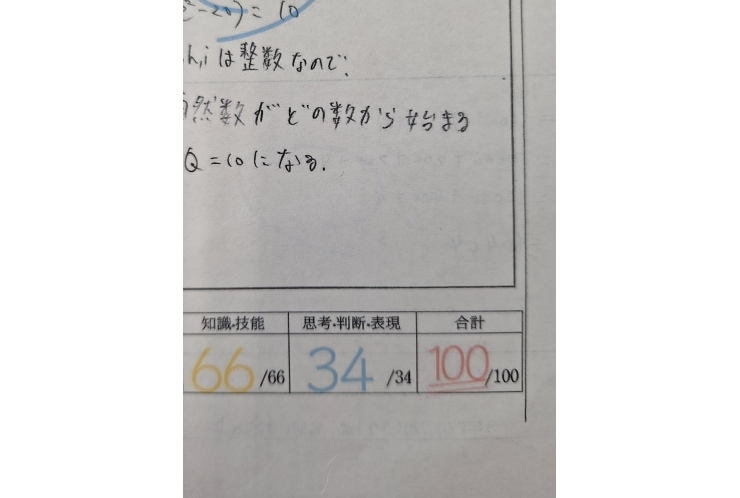 ²-20) = 10
h,iは整数なので、
然数がどの数から始まる
Q=10になる.
知識・技能 思考・判断・表現 合計
66/66 34/34 100/100